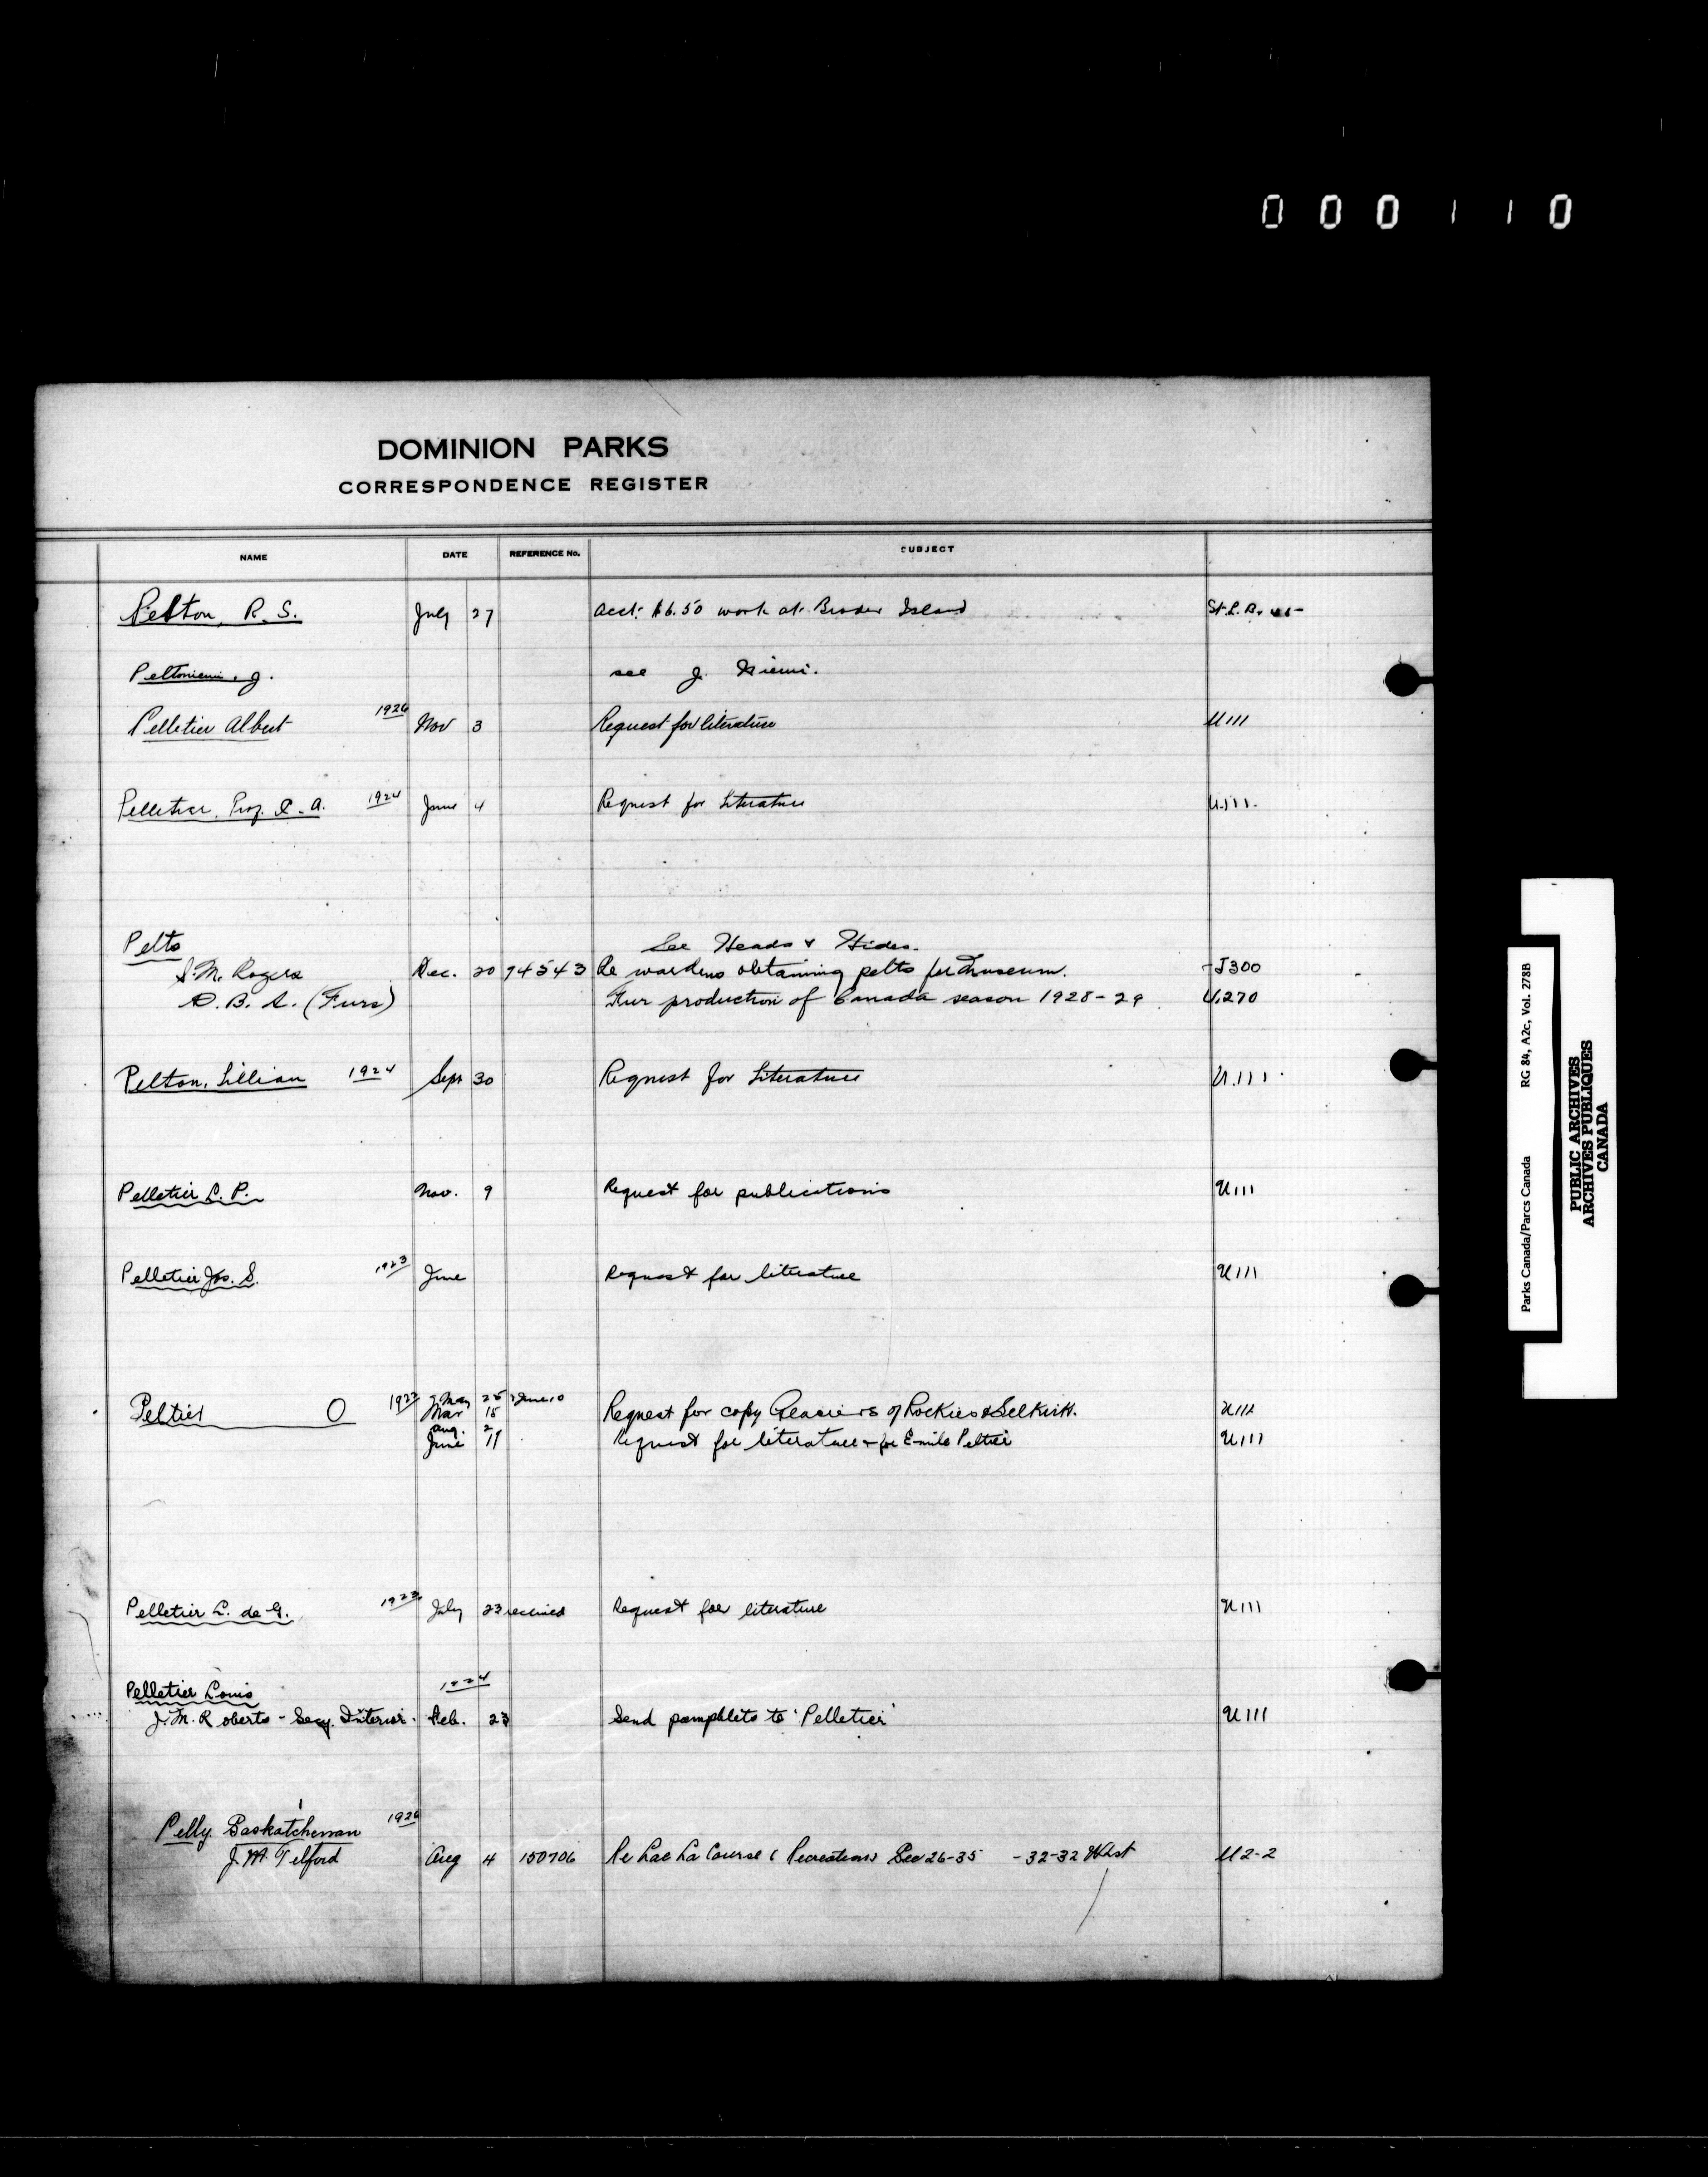 000110
DOMINION PARKS
CORRESPONDENCE REGISTER
NAME DATE REFERENCE No. SUBJECT
Pelton, R. S. July 27 Acct. $6.50 work at Broder Island St. L.
Peltoniemi, J. see J. Niemi.
Pelletier Albert 1926 Nov 3 Request for literature U111
Pelletier, Prof. A. 1924 June 4 Request for Literature U.111.
Pelts See Heads & Hides.
S. M. Rogers Dec. 20 74543 Re wardens obtaining pelts for Museum. J300
D. B. S. (Furs) Fur production of Canada season 1928-29 U.270
Pelton, Lillian 1924 Sept 30 Request for Literature U.111.
Pelletier L. P. Nov. 9 Request for publications U111
Pelletier Jos. S. 1923 June Request for literature U111
Peltier O 1922 May 25 June 10
Mar 15 Request for copy Glaciers of Rockies & Selkirk. U111
Aug. 2
June 11 Request for literature & for Emile Peltier U111
Pelletier L. de G. 1923 July 23 received Request for literature U111
Pelletier Louis 1924
J. M. Roberts - Secy. Interior. Feb. 23 Send pamphlets to 'Pelletier' U111
Pelly Saskatchewan 1926
J. M. Telford Aug 4 150706 Re Lac La Course (Recreation) Sec 26-35 - 32-32 West U2-2
Parks Canada/Parcs Canada RG 84, A2c, Vol. 278B
PUBLIC ARCHIVES
ARCHIVES PUBLIQUES
CANADA